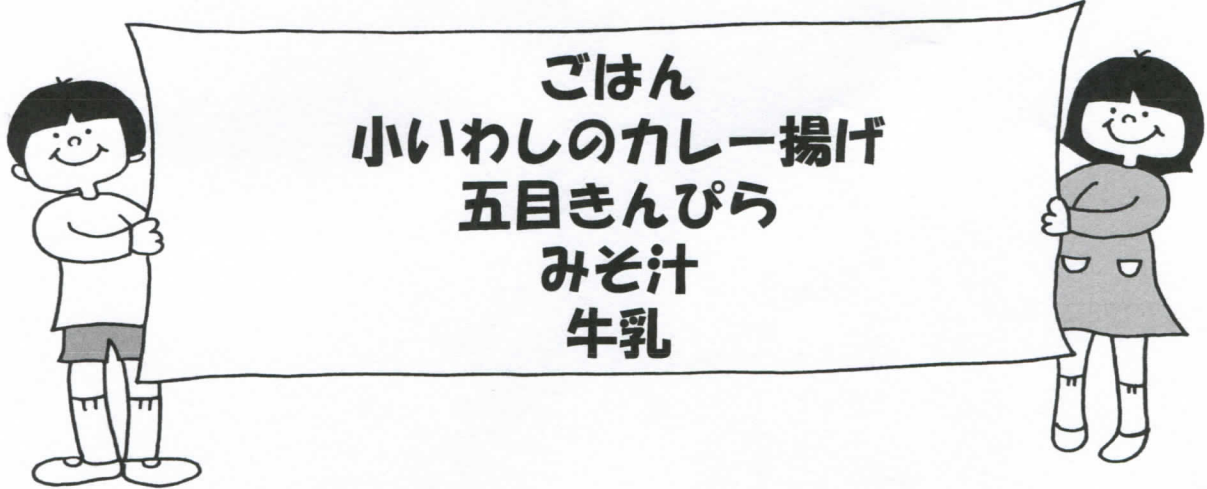 ごはん
小いわしのカレー揚げ
五目きんぴら
みそ汁
牛乳